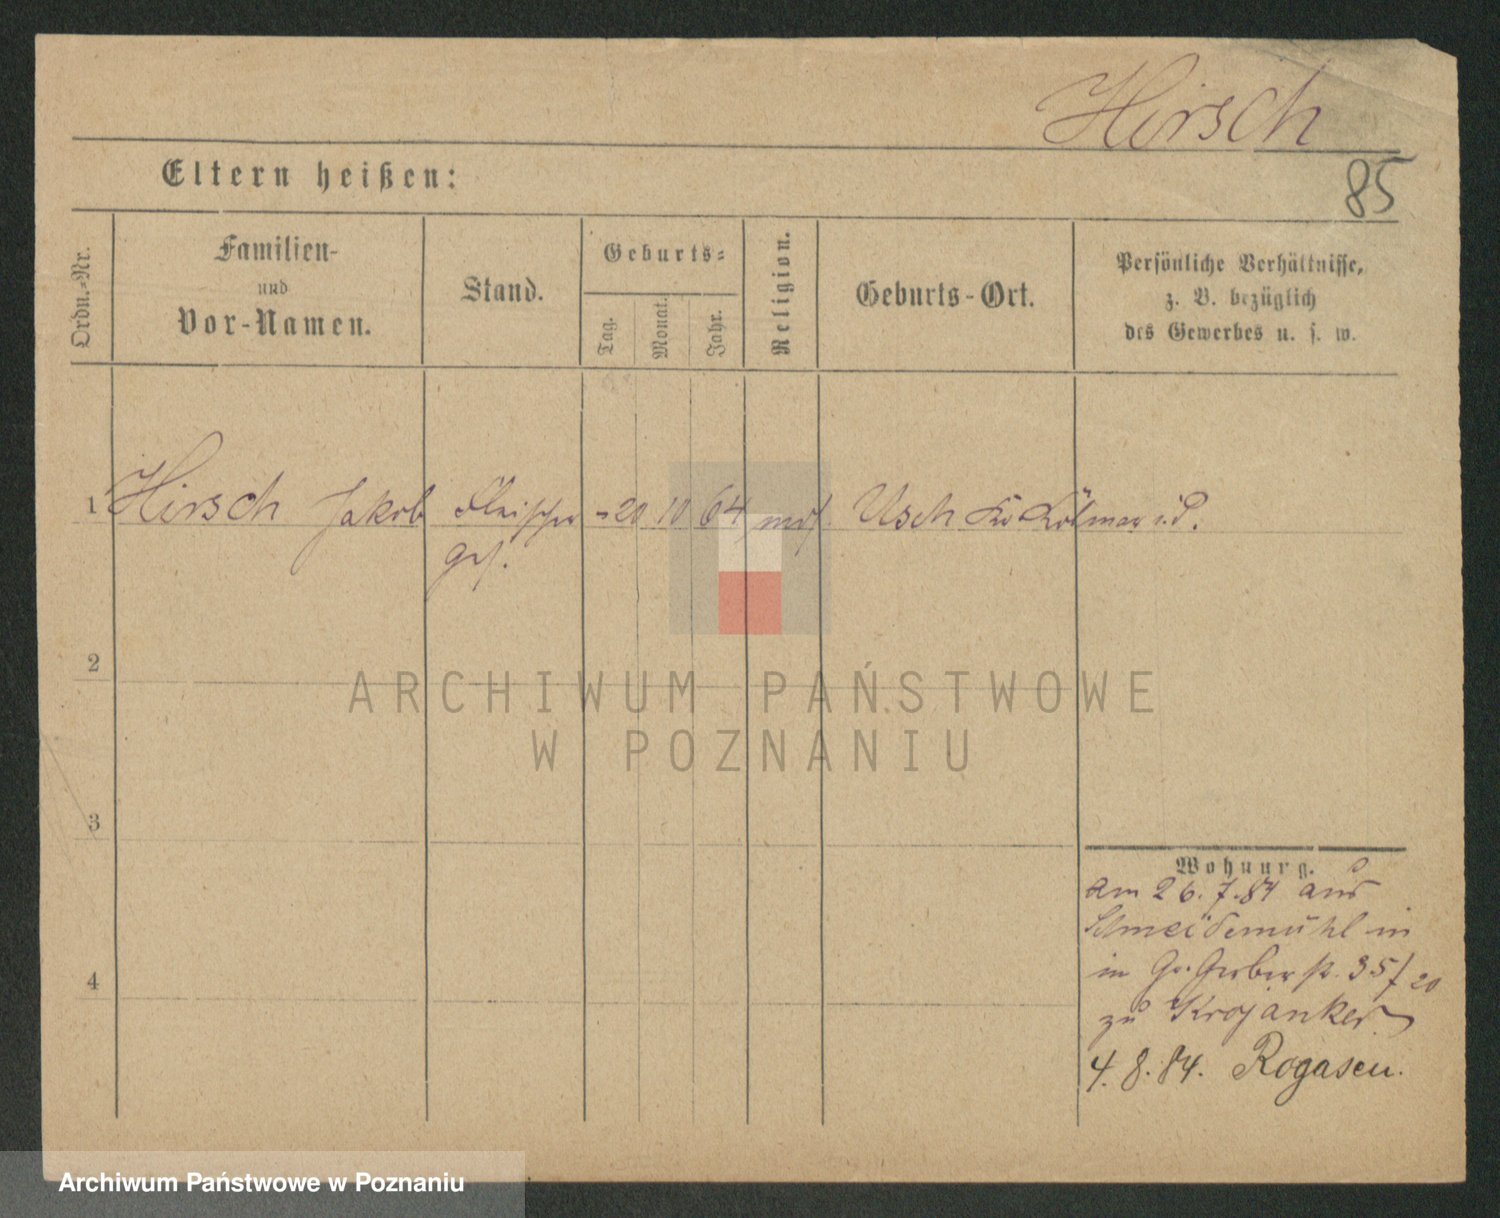 Hirsch
85
Eltern heißen:
Ordn.-Nr.
Familien-
und
Vor-Namen.
Stand.
Geburts-
Tag.
Monat.
Jahr.
Religion.
Geburts-Ort.
Persönliche Verhältnisse,
z. B. bezüglich
des Gewerbes u. s. w.
1 Hirsch Jakob Fleischer 20 10 64 mos. Usch Kr Kolmar i. P.
ges.
2
ARCHIWUM PAŃSTWOWE
W POZNANIU
3
Wohnung.
am 26.7.84 aus
Schneidemühl in
in Gr. Gerberst. 35/20
zu Krojanker
4
4.8.84. Rogasen.
Archiwum Państwowe w Poznaniu